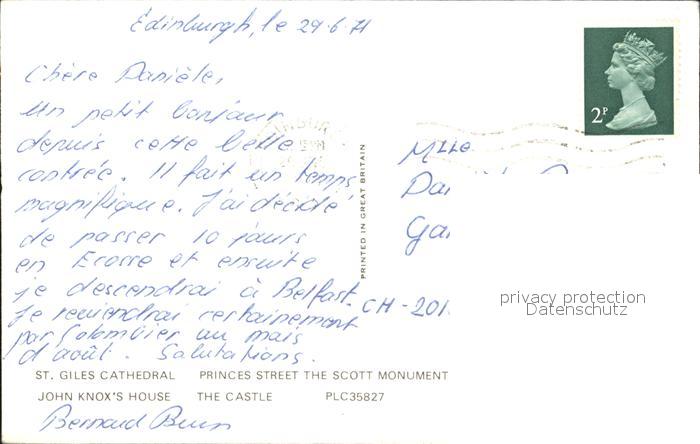 Edinburgh, le 29.6.71
Chère Danièle,
Un petit bonjour
depuis cette belle
contrée. Il fait un temps
magnifique. J'ai décidé
de passer 10 jours
en Ecosse et ensuite
je descendrai à Belfast.
Je reviendrai certainement
par Colombier au mois
d'août. Salutations.
Bernard
2P
Mlle
Da
Ga
CH - 201
PRINTED IN GREAT BRITAIN
privacy protection
Datenschutz
ST. GILES CATHEDRAL PRINCES STREET THE SCOTT MONUMENT
JOHN KNOX'S HOUSE THE CASTLE PLC35827